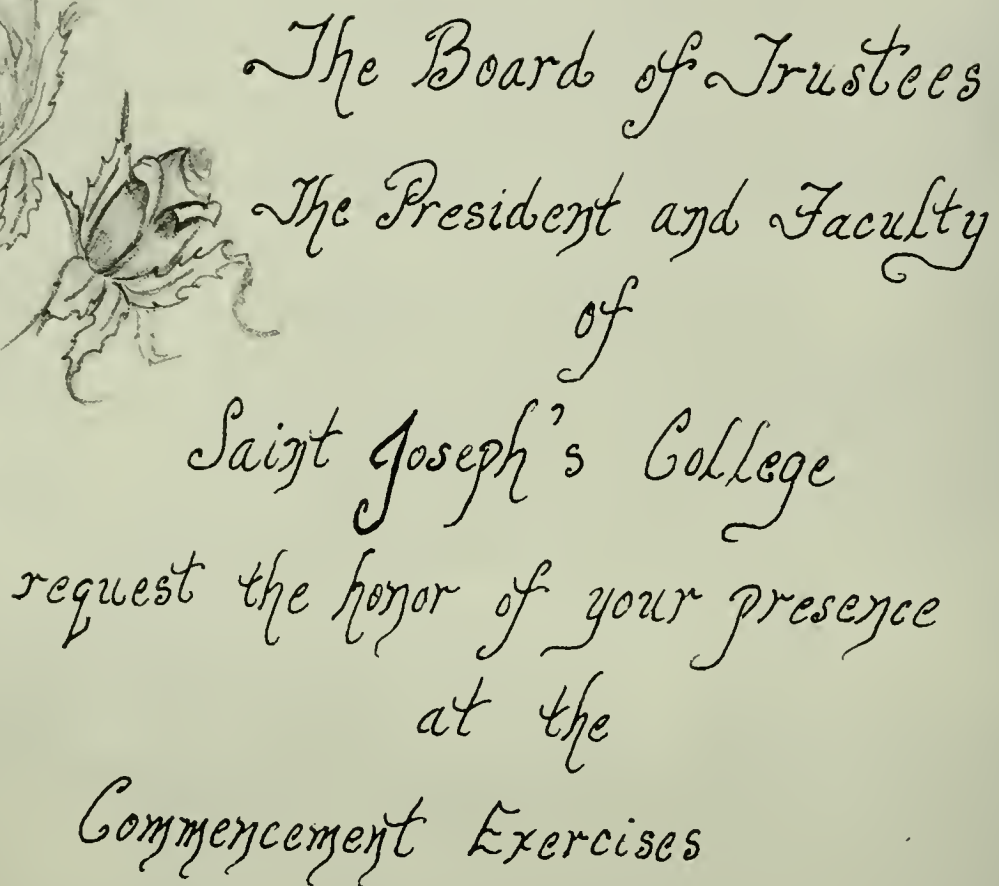 The Board of Trustees
The President and Faculty
of
Saint Joseph's College
request the honor of your presence
at the
Commencement Exercises